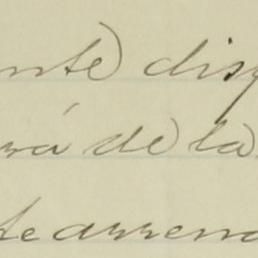 ente disp
rá de la
te arrend